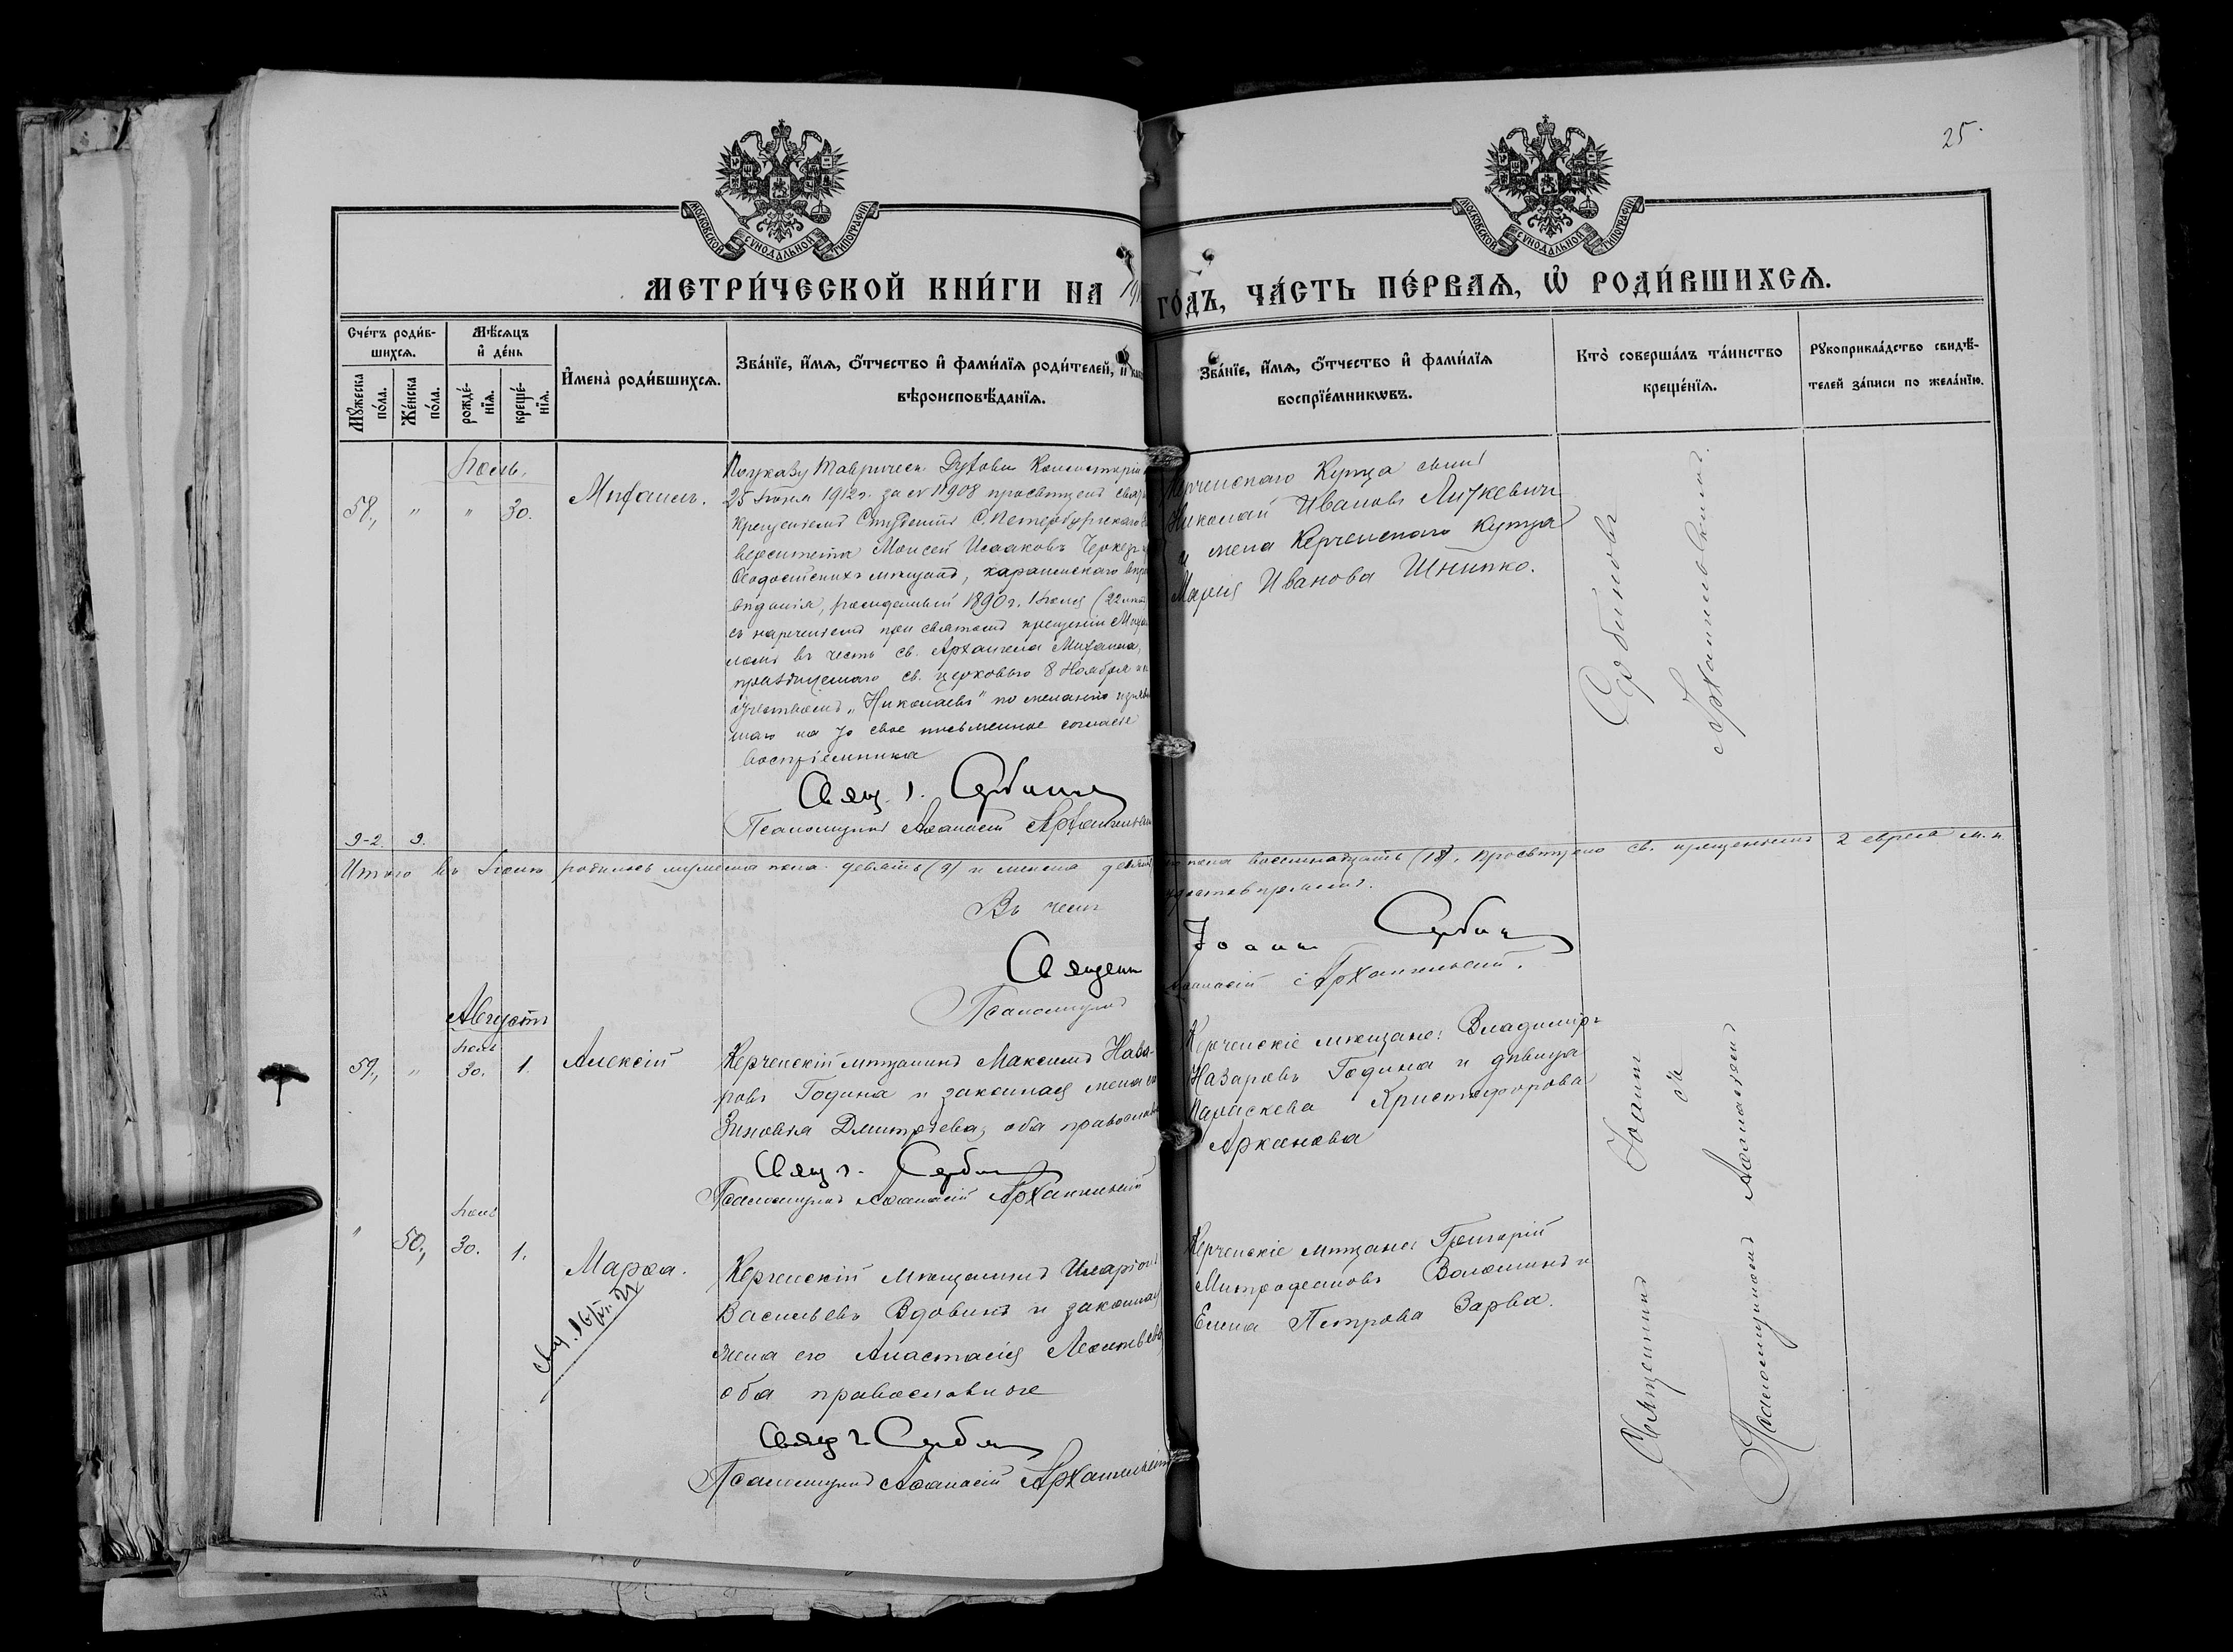 25.
МОСКОВСКОЙ СѴНОДАЛЬНОЙ ТИПОГРАФІИ
МОСКОВСКОЙ СѴНОДАЛЬНОЙ ТИПОГРАФІИ
МЕТРИ́ЧЕСКОЙ КНИ́ГИ НА 191 ГО́ДЪ, ЧА́СТЬ ПЕ́РВАѦ, Ѽ РОДИ́ВШИХСѦ.
Сче́тъ роди́в-
шихсѧ.
Мꙋ́жеска
по́ла.
Же́нска
по́ла.
Мѣ́сѧцъ
и҆ де́нь
рожде́-
нїѧ.
креще́-
нїѧ.
И҆мена̀ роди́вшихсѧ.
Зва́нїе, и҆́мѧ, ѻ҆́тчество и҆ фами́лїѧ роди́телей, и҆
вѣроисповѣ́данїѧ.
Зва́нїе, и҆́мѧ, ѻ҆́тчество и҆ фами́лїѧ
воспрїе́мникѡвъ.
Кто̀ соверша́лъ та́инство
креще́нїѧ.
Рꙋкоприкла́дство свидѣ́-
телей за́писи по жела́нїю.
Іюль.
58., " " 30.
Михаилъ.
По указу Таврическ. Духовн. Консисторіи
25 Іюля 1912 г. за № 11908 просвѣщенъ святымъ
крещеніемъ Студентъ С. Петербургскаго
верситета Моисей Исааковъ Черкез
Ѳеодосійскихъ мѣщанъ, караимскаго вѣро
вѣданія, рожденный 1890 г. Іюля (22 лѣтъ
съ нареченіемъ при святомъ крещеніи Миха
ломъ въ честь св. Архангела Михаила,
празднуемаго св. церковью 8 Ноября и съ
отчествомъ „Николаевъ" по желанію изъяв
шаго на то свое письменное согласіе
воспріемника
Свящ. І. Сербиновъ
Псаломщикъ Аѳанасій Архангельскій
Керченскаго Купца сынъ
Николай Ивановъ Лицкевичъ
и жена Керченскаго купца
Марія Иванова Шнипко.
Сербиновъ
Архангельскимъ.
9-2. 9.
Итого въ Іюлѣ родилось мужеска пола девять (9) и женска девять пола восемнадцать (18). Просвѣщено св. крещеніемъ 2 еврея м. п.
Въ чемъ удостовѣряемъ.
Священникъ Іоаннъ Сербиновъ
Псаломщикъ Аѳанасій Архангельскій.
Августъ
Іюль
59., " 30. 1.
Алексій
Керченскій мѣщанинъ Максимъ Наза-
ровъ Година и законная жена его
Зиновія Дмитріева, оба православные
Свящ. І. Сербиновъ
Псаломщикъ Аѳанасій Архангельскій
Керченскіе мѣщане: Владиміръ
Назаровъ Година и дѣвица
Параскева Христофорова
Арканова
Іюль
" 50., 30. 1.
Марѳа.
Керченскій мѣщанинъ Иларіонъ
Васильевъ Вдовинъ и законная
жена его Анастасія Леонтьева,
оба православные
Свящ. І. Сербиновъ
Псаломщикъ Аѳанасій Архангельскій
Керченскіе мѣщане: Григорій
Митрофановъ Волошинъ и
Елена Петрова Зарва.
Священникъ Іоаннъ
съ
Псаломщикомъ Аѳанасіемъ